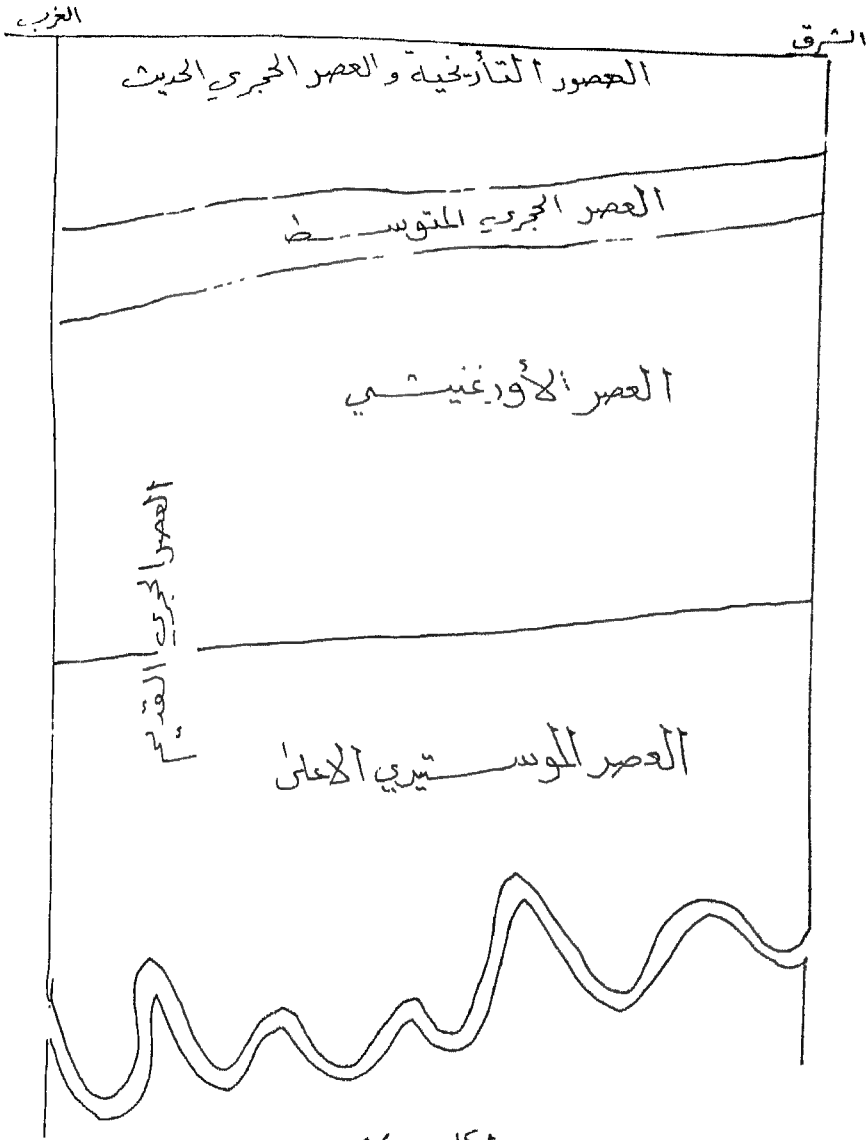 الغرب
الشرق
العصور التأريخية و العصر الحجري الحديث
العصر الحجري المتوسط
العصر الأورغنيشي
العصر الحجري القديم
العصر الموستيري الاعلى